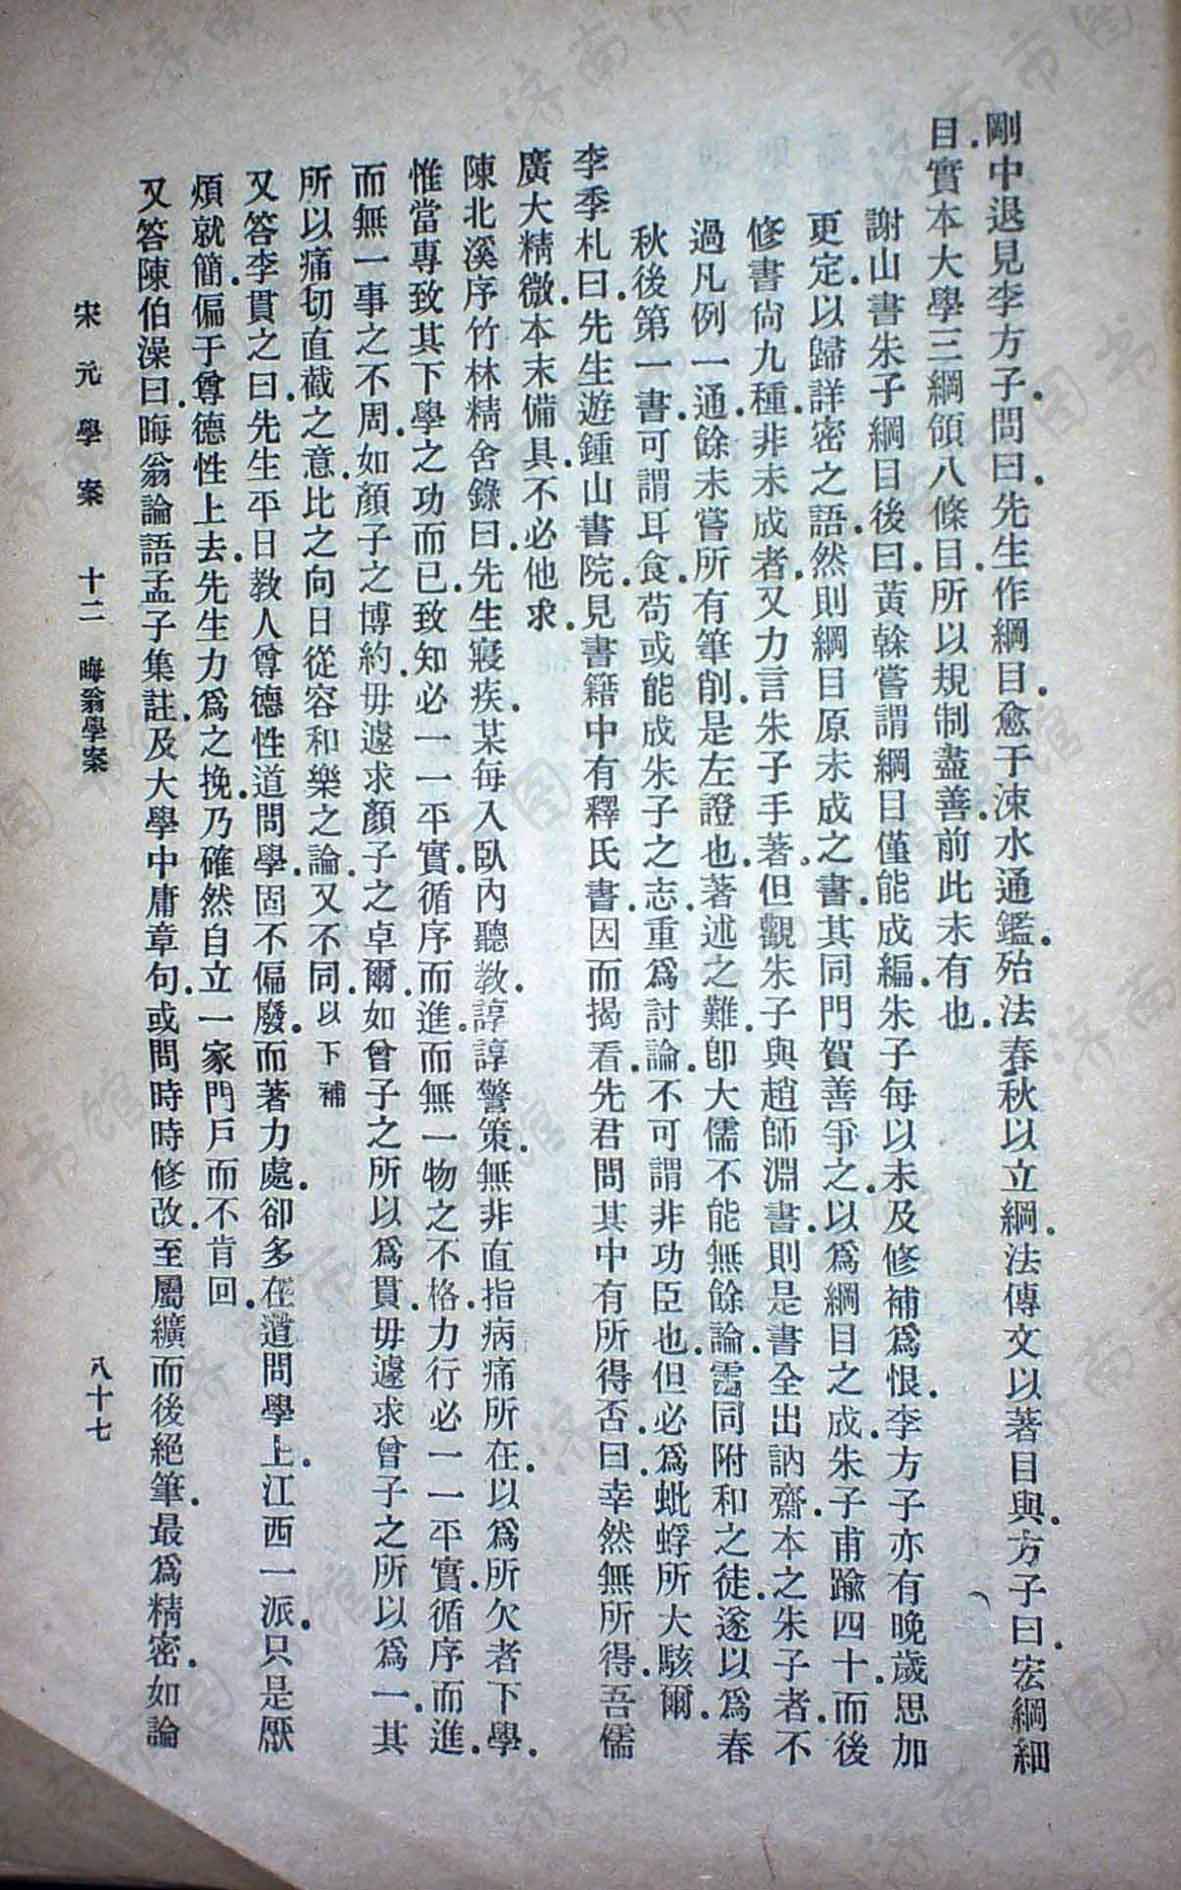 剛中退見李方子問曰先生作綱目愈于涑水通鑑殆法春秋以立綱法傳文以著目與方子曰宏綱細
目實本大學三綱領八條目所以規制盡善前此未有也
謝山書朱子綱目後曰黃榦嘗謂綱目僅能成編朱子每以未及修補爲恨李方子亦有晚歲思加
更定以歸詳密之語然則綱目原未成之書其同門賀善爭之以爲綱目之成朱子甫踰四十而後
修書尙九種非未成者又力言朱子手著但觀朱子與趙師淵書則是書全出訥齋本之朱子者不
過凡例一通餘未嘗所有筆削是左證也著述之難卽大儒不能無餘論雷同附和之徒遂以爲春
秋後第一書可謂耳食苟或能成朱子之志重爲討論不可謂非功臣也但必爲蚍蜉所大駭爾
李季札曰先生遊鍾山書院見書籍中有釋氏書因而揭看先君問其中有所得否曰幸然無所得吾儒
廣大精微本末備具不必他求
陳北溪序竹林精舍錄曰先生寢疾某每入臥內聽敎諄諄警策無非直指病痛所在以爲所欠者下學
惟當專致其下學之功而已致知必一一平實循序而進而無一物之不格力行必一一平實循序而進
而無一事之不周如顏子之博約毋遽求顏子之卓爾如曾子之所以爲貫毋遽求曾子之所以爲一其
所以痛切直截之意比之向日從容和樂之論又不同以下補
又答李貫之曰先生平日敎人尊德性道問學固不偏廢而著力處卻多在道問學上江西一派只是厭
煩就簡偏于尊德性上去先生力爲之挽乃確然自立一家門戶而不肯回
又答陳伯澡曰晦翁論語孟子集註及大學中庸章句或問時時修改至屬纊而後絕筆最爲精密如論
宋元學案 十二 晦翁學案 八十七
济南市图书馆